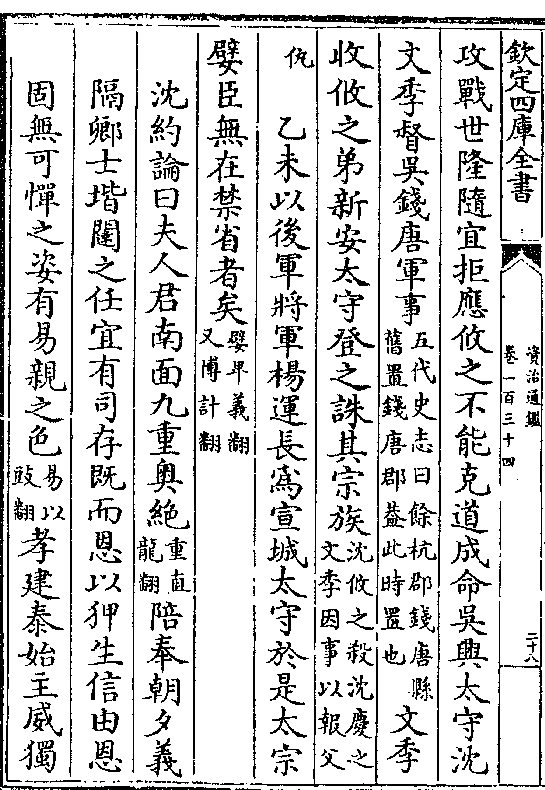 欽定四庫全書
資治通鑑
卷一百三十四
二十八
攻戰世隆隨宜拒應攸之不能克道成命吳興太守沈
文季督吳錢唐軍事五代史志曰餘杭郡錢唐縣
舊置錢唐郡葢此時置也文季
收攸之弟新安太守登之誅其宗族沈攸之殺沈慶之
文季因事以報父
仇
乙未以後軍將軍楊運長為宣城太守於是太宗
嬖臣無在禁省者矣嬖卑義翻
又博計翻
沈約論曰夫人君南面九重奥絶重直
龍翻陪奉朝夕義
隔卿士堦闥之任宜有司存既而恩以狎生信由恩
固無可憚之姿有易親之色易以
豉翻孝建泰始主威獨